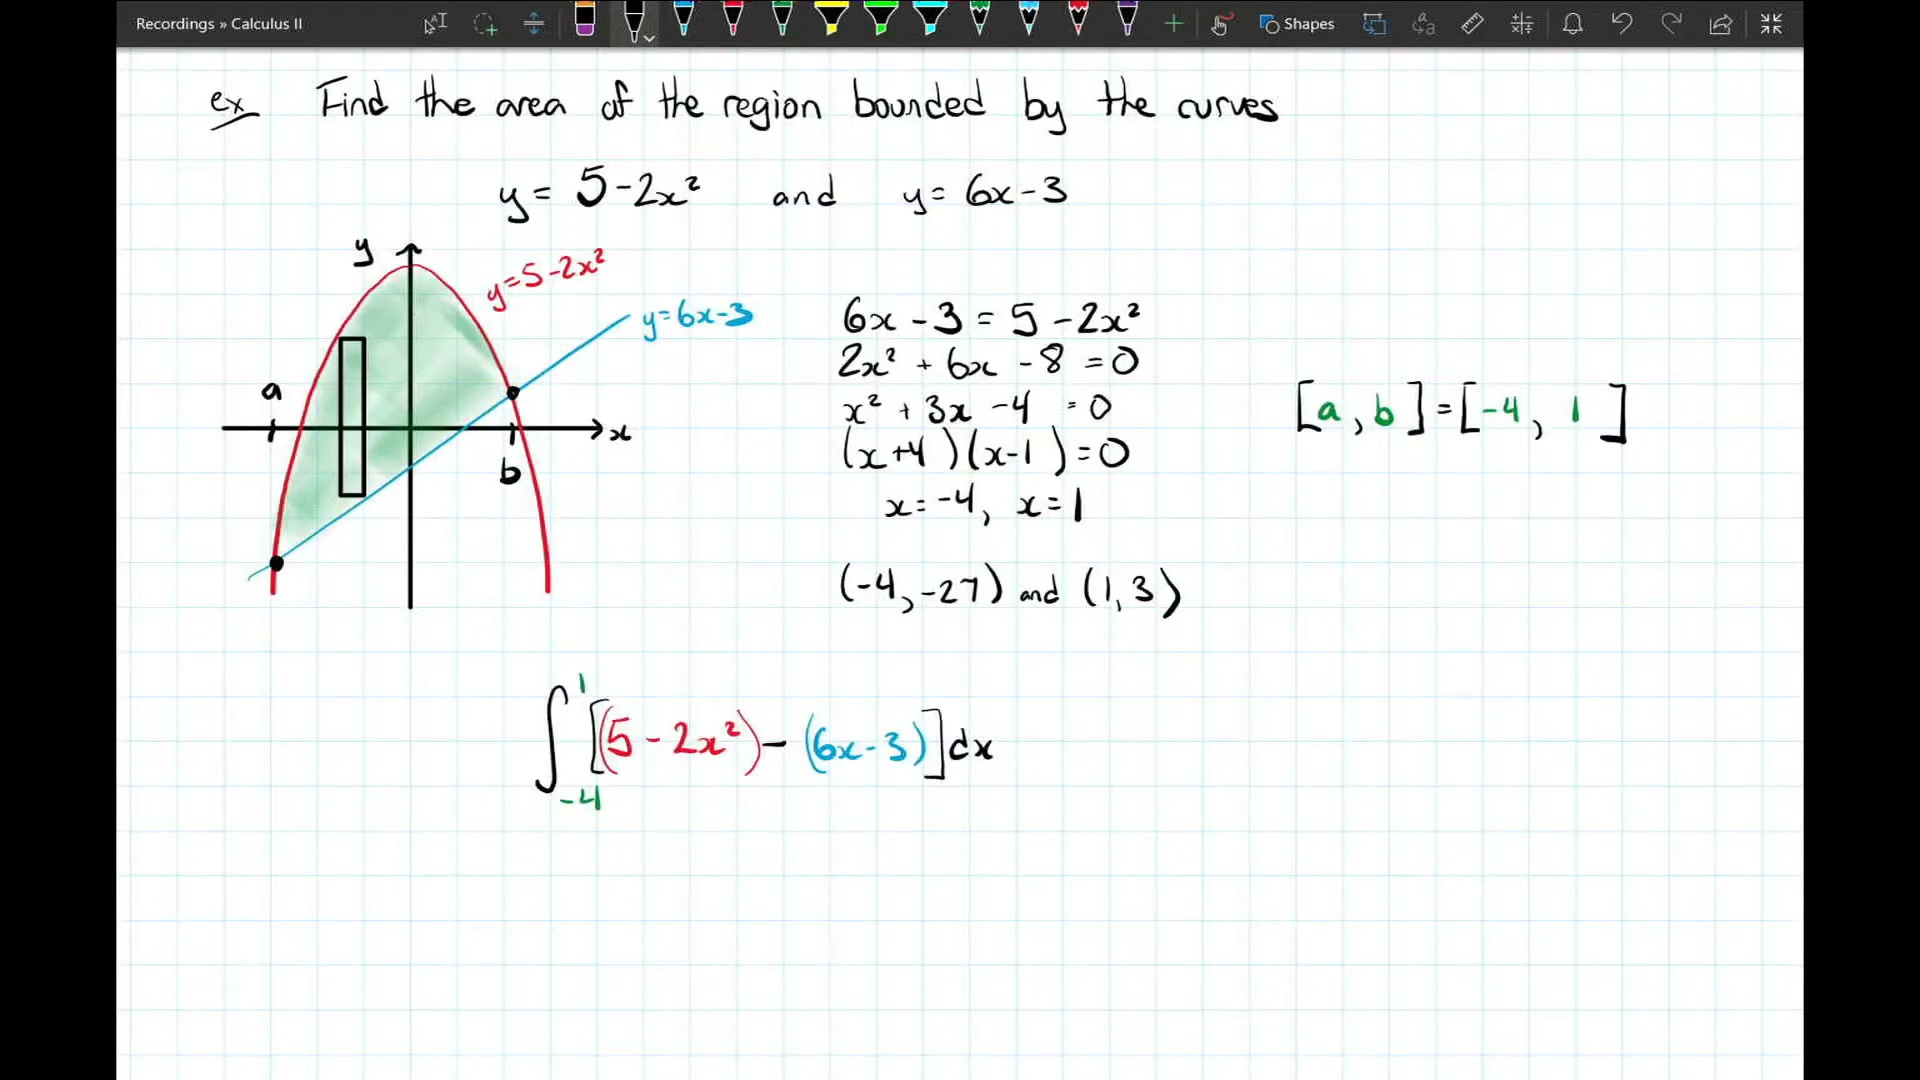 Recordings » Calculus II
Shapes
ex Find the area of the region bounded by the curves
y = 5-2x² and y = 6x-3
y
y=5-2x²
y=6x-3
a
x
b
6x - 3 = 5 - 2x²
2x² + 6x - 8 = 0
x² + 3x - 4 = 0
(x+4)(x-1) = 0
x = -4, x = 1
(-4, -27) and (1, 3)
[a, b] = [-4, 1]
∫₋₄¹ [(5 - 2x²) - (6x - 3)] dx